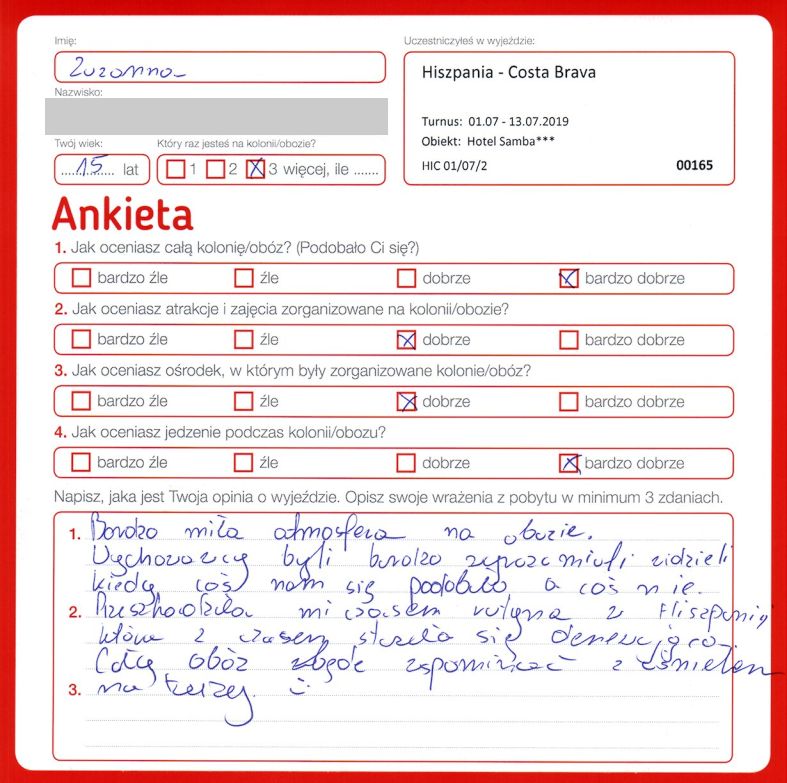 Imię:
Zuzanna
Nazwisko:
Twój wiek:
15 lat
Który raz jesteś na kolonii/obozie?
1 2 3 więcej, ile .......
Uczestniczyłeś w wyjeździe:
Hiszpania - Costa Brava
Turnus: 01.07 - 13.07.2019
Obiekt: Hotel Samba***
HIC 01/07/2 00165
Ankieta
1. Jak oceniasz całą kolonię/obóz? (Podobało Ci się?)
bardzo źle źle dobrze bardzo dobrze
2. Jak oceniasz atrakcje i zajęcia zorganizowane na kolonii/obozie?
bardzo źle źle dobrze bardzo dobrze
3. Jak oceniasz ośrodek, w którym były zorganizowane kolonie/obóz?
bardzo źle źle dobrze bardzo dobrze
4. Jak oceniasz jedzenie podczas kolonii/obozu?
bardzo źle źle dobrze bardzo dobrze
Napisz, jaka jest Twoja opinia o wyjeździe. Opisz swoje wrażenia z pobytu w minimum 3 zdaniach.
1. Bardzo miła atmosfera na obozie.
Wychowawcy byli bardzo widzieli
kiedy coś nam się podobało a coś nie.
2. Przeszkadzała mi czasem rutyna w Hiszpanii,
która z czasem stała się denerwująca.
Cały obóz będę wspominać z uśmiechem
3. na twarzy. :)